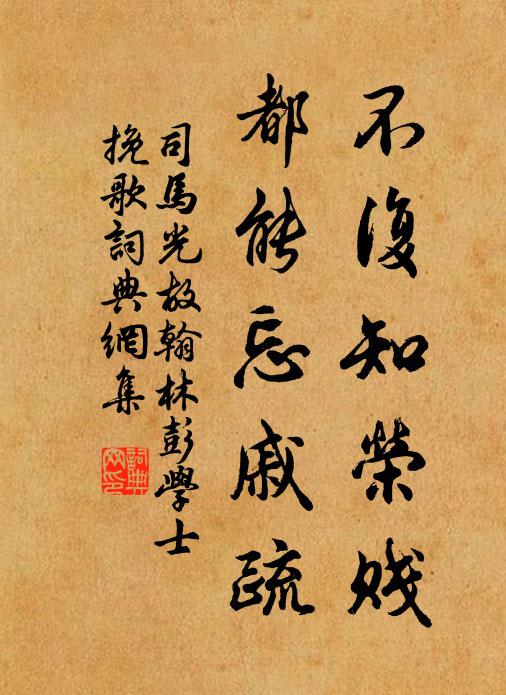 不復知榮賤
都能忘戚疏
司馬光故翰林彭學士
挽歌詞典網集
詞典網印